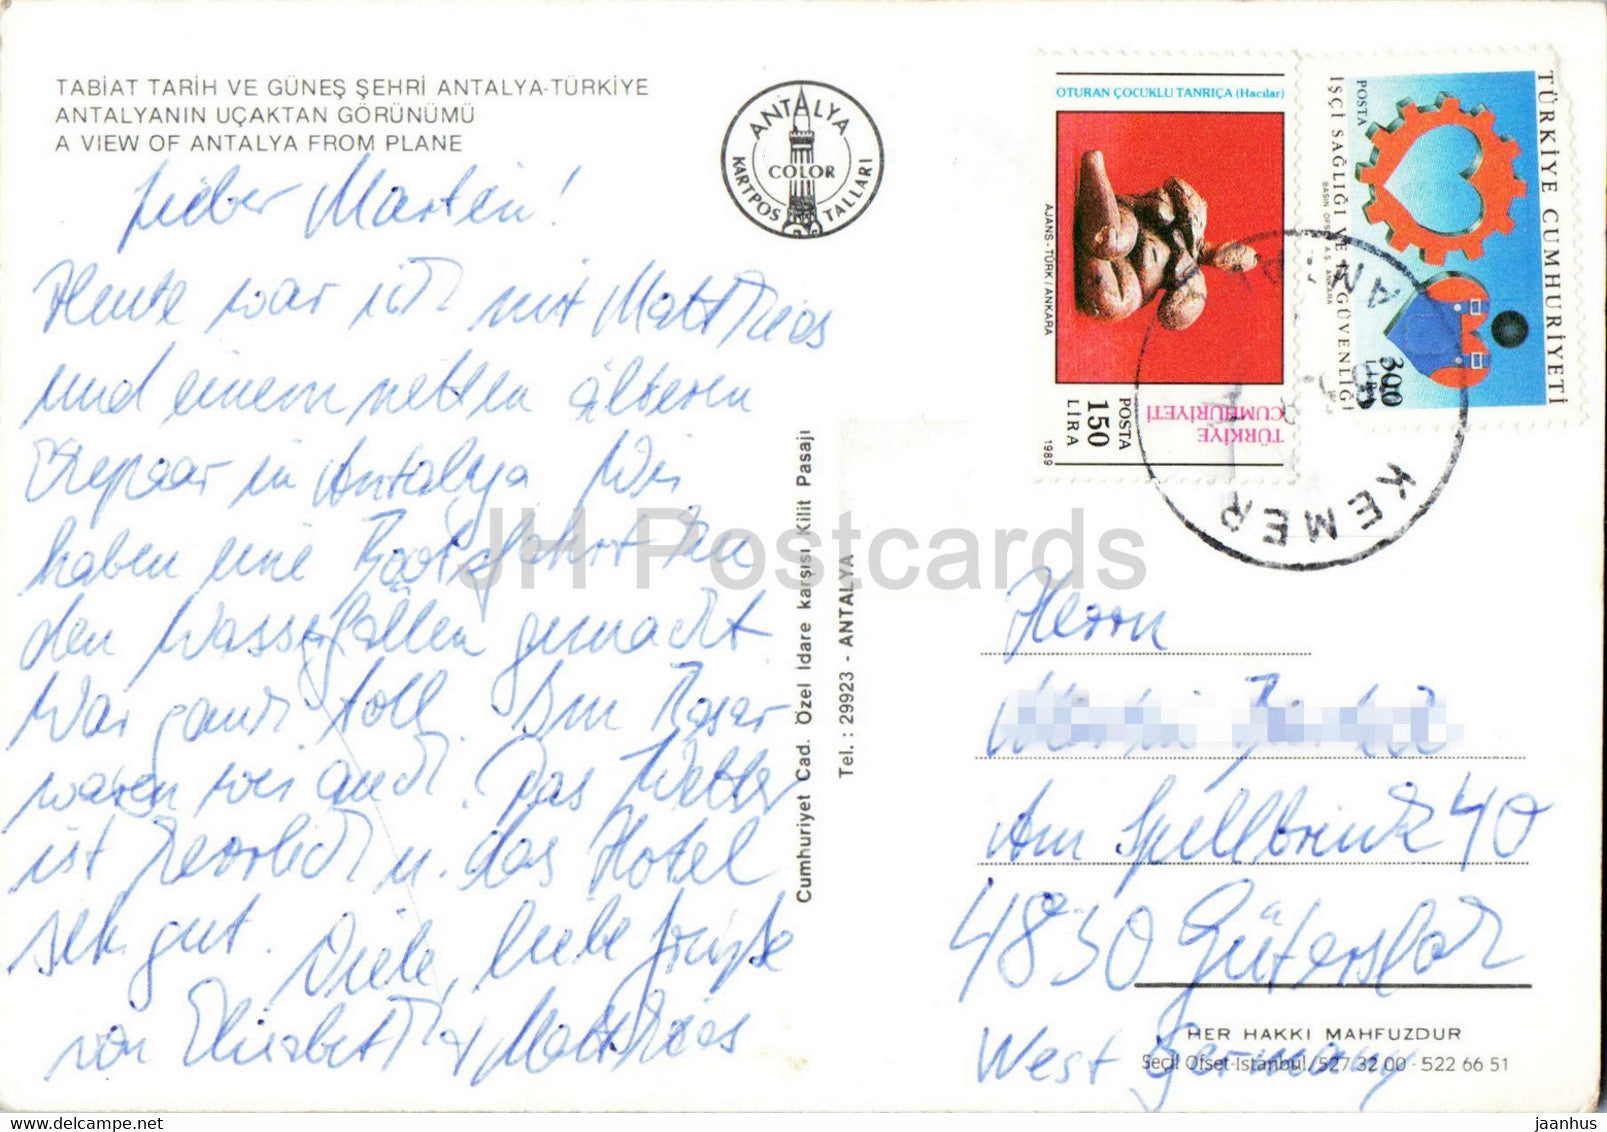 TABİAT TARİH VE GÜNEŞ ŞEHRİ ANTALYA-TÜRKİYE
ANTALYANIN UÇAKTAN GÖRÜNÜMÜ
A VIEW OF ANTALYA FROM PLANE
Lieber Martin!
Heute war ich mit Matthias
und einem netten älteren
Ehepaar in Antalya Wir
haben eine Bootsfahrt zu
den Wasserfällen gemacht.
War ganz toll. Im Basar
waren wir auch. Das Wetter
ist herrlich u. das Hotel
sehr gut. Viele, liebe Grüße
von Elisabeth + Matthias
ANTALYA
COLOR
KARTPOSTALLARI
Cumhuriyet Cad. Özel İdare karşısı Kilit Pasajı
Tel. : 29923 - ANTALYA
OTURAN ÇOCUKLU TANRIÇA (Hacılar)
AJANS-TÜRK/ANKARA
TÜRKİYE
CUMHURİYETİ
POSTA
150
LİRA
1989
TÜRKİYE CUMHURİYETİ
İŞÇİ SAĞLIĞI VE İŞ GÜVENLİĞİ
BASIN OFSET A.Ş. ANKARA
POSTA
300
LİRA
KEMER
Herrn
Am Spellbrink 40
4830 Gütersloh
West Germany
HER HAKKI MAHFUZDUR
Seçil Ofset-İstanbul/527 32 00 - 522 66 51
JH Postcards
www.delcampe.net
jaanhus